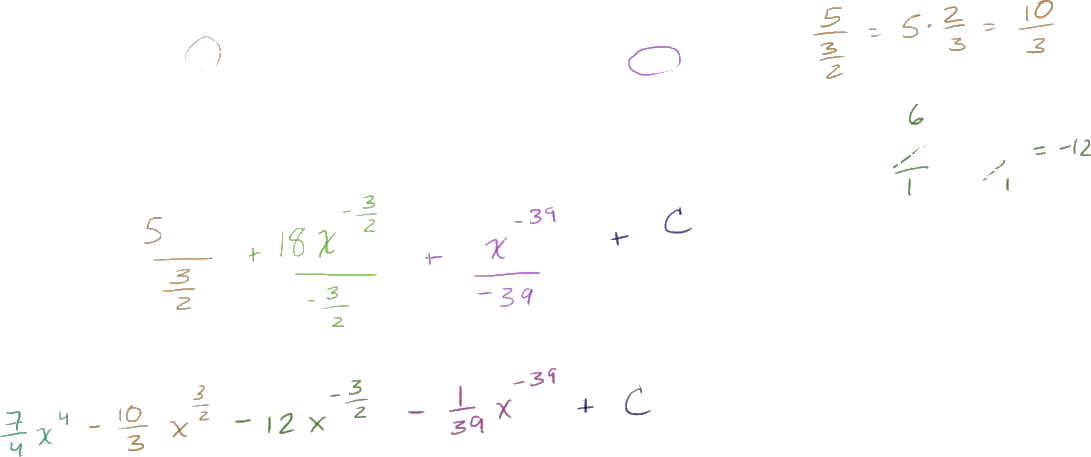 5/(3/2) = 5 · 2/3 = 10/3
6
/1 /1 = -12
5/(3/2) + 18x^(-3/2)/(-3/2) + x^(-39)/(-39) + C
7/4 x^4 - 10/3 x^(3/2) - 12x^(-3/2) - 1/39 x^(-39) + C